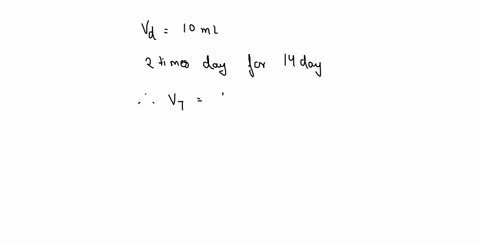 Vd = 10 mL
2 times day for 14 day
∴ VT =